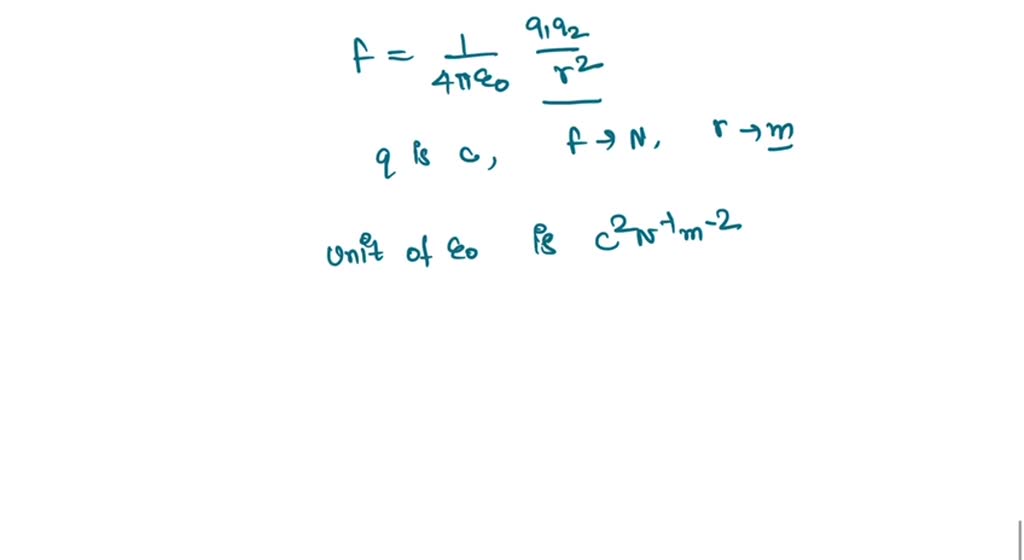 f = 1/4πε0 q1q2/r²
q is c, f → N, r → m
unit of ε0 is c²N⁻¹m⁻²